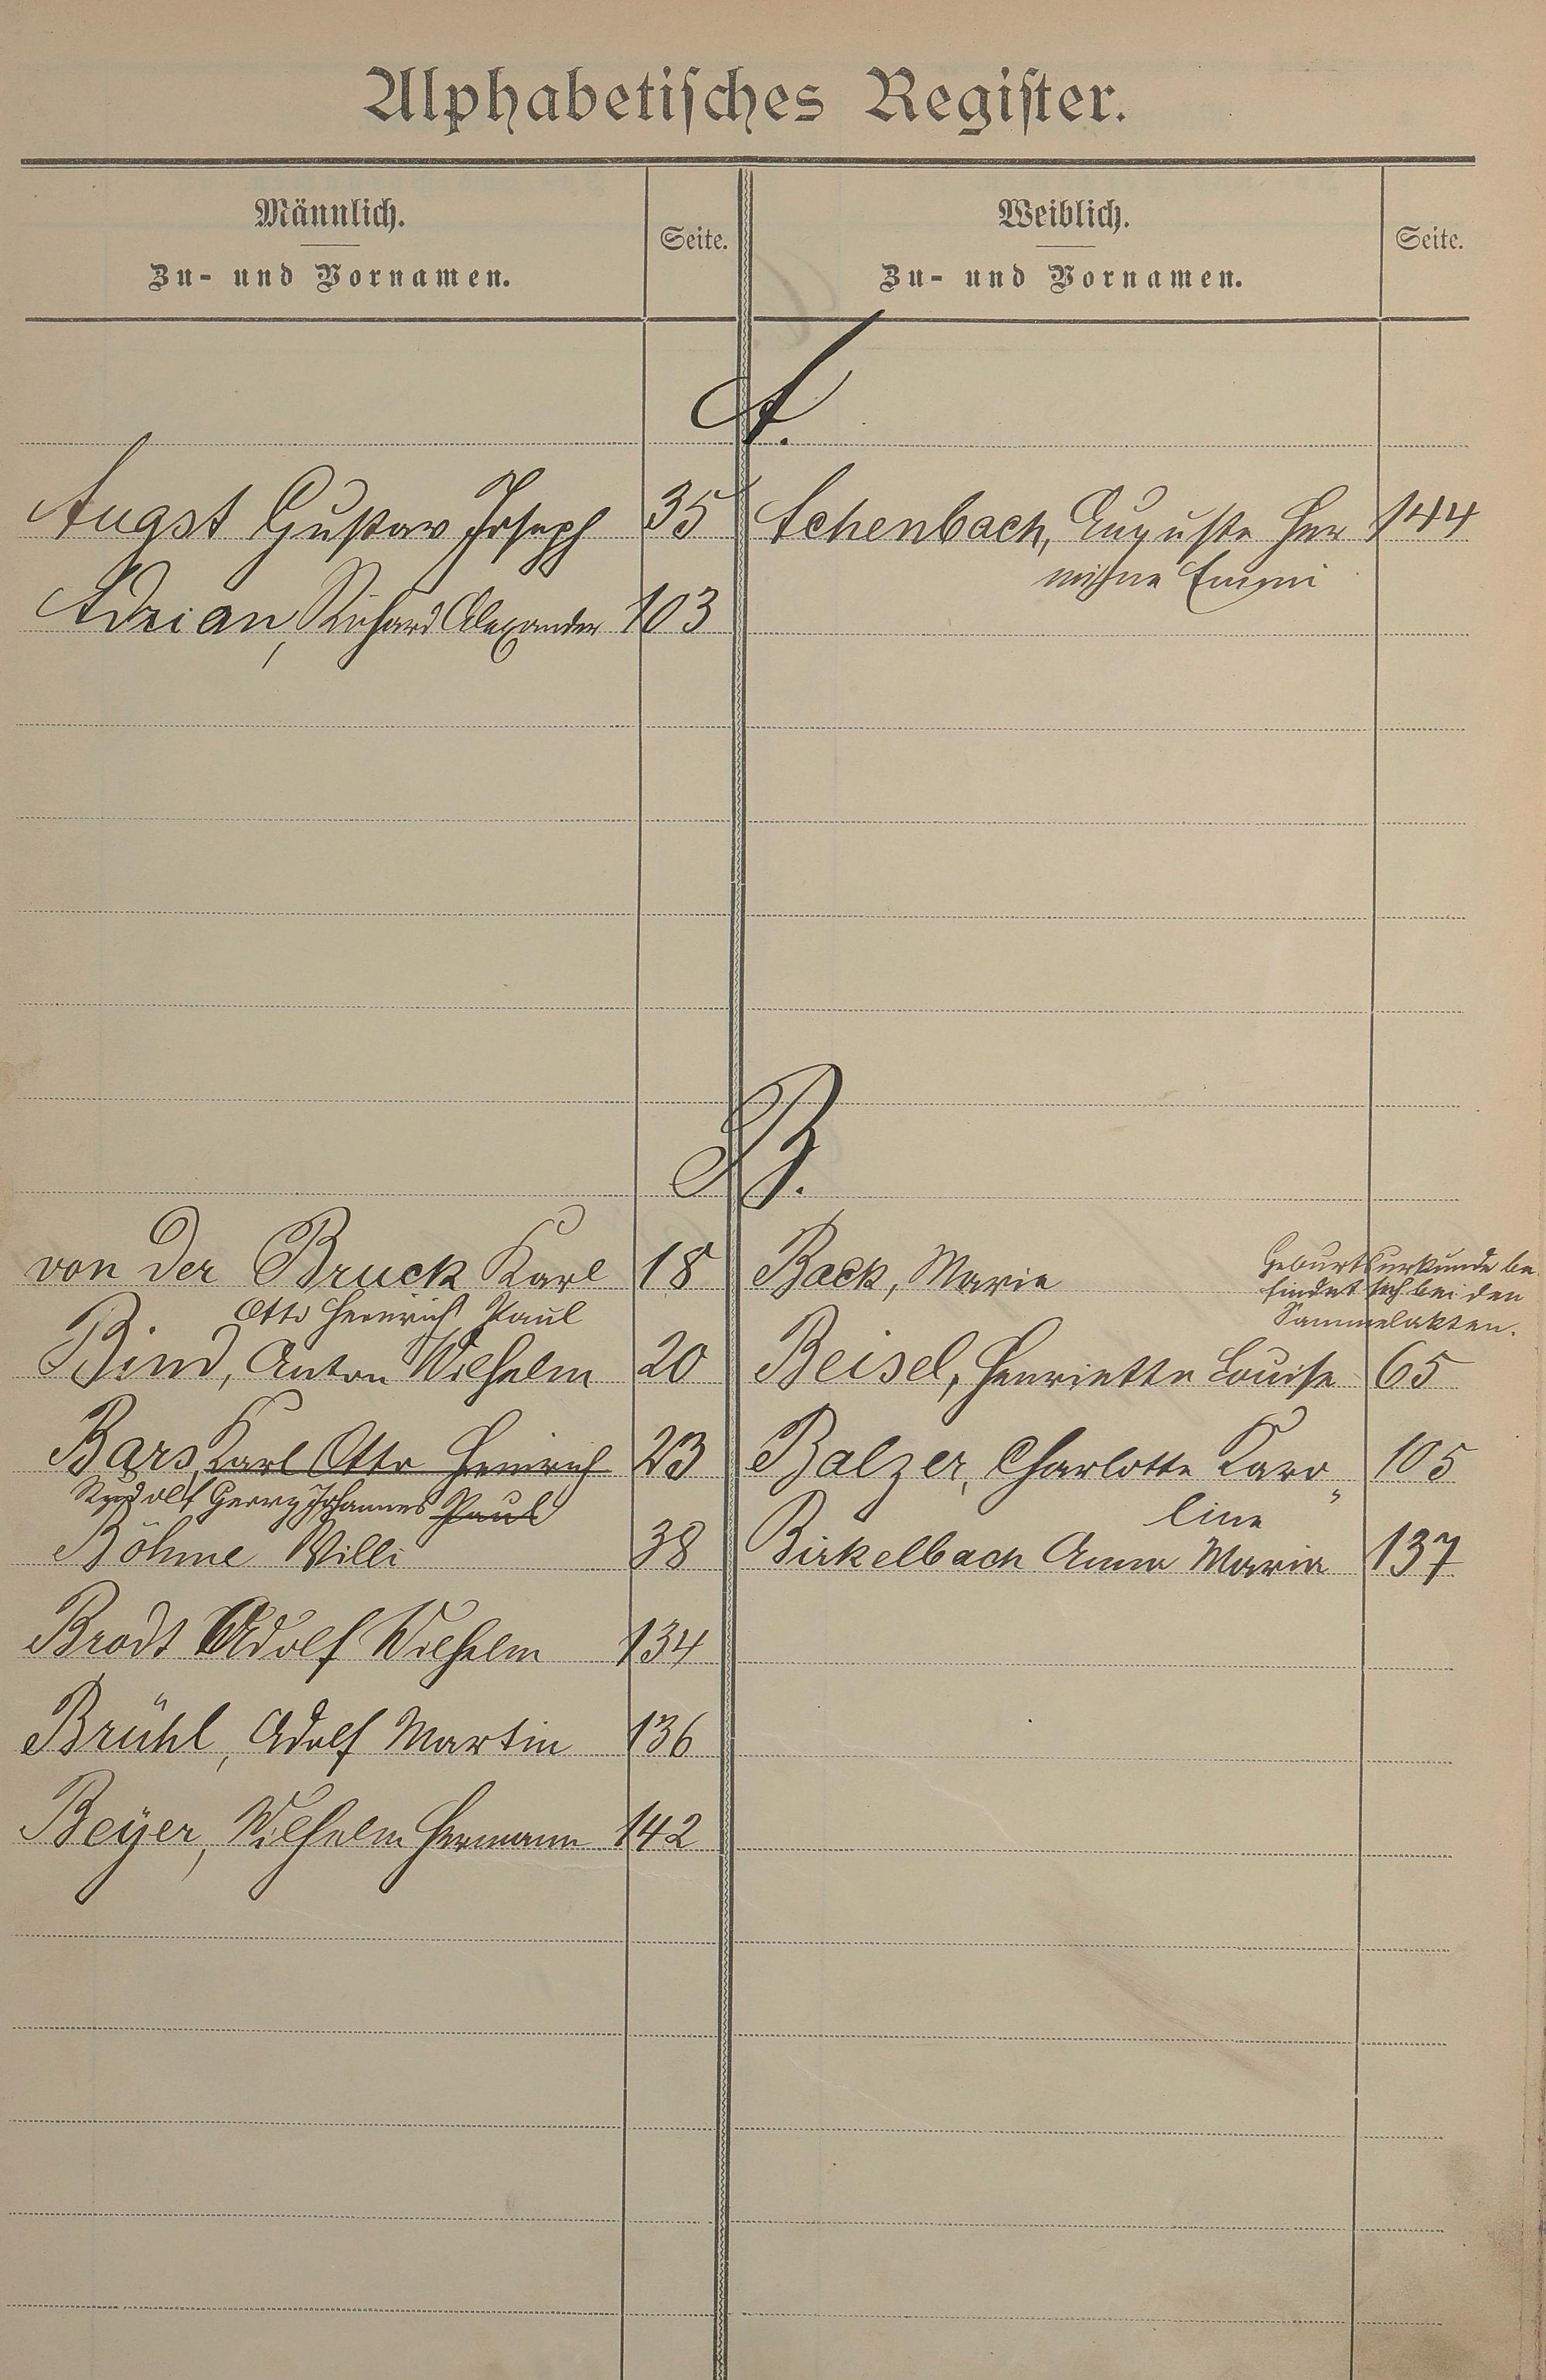 Alphabetisches Register.
Männlich.
Zu- und Vornamen.
Seite.
Weiblich.
Zu- und Vornamen.
Seite.
A.
Augst Gustav Joseph 35
Achenbach, Auguste Her 144
mihne Emmi
Adrian, Richard Alexander 103
B.
von der Bruck Karl 18
Otto Heinrich Paul
Back, Marie
Geburtsurkunde be
findet sich bei den
Sammelakten.
Bind, Anton Wilhelm 20
Beisel, Henriette Louise 65
Bars, Karl Otto Heinrich 23
Rudolf Georg Johannes Paul
Balzer, Charlotte Karo„ 105
line
Böhme Willi 38
Birkelbach Anna Maria 137
Brodt Adolf Wilhelm 134
Brühl, Adolf Martin 136
Beÿer, Wilhelm Hermann 142